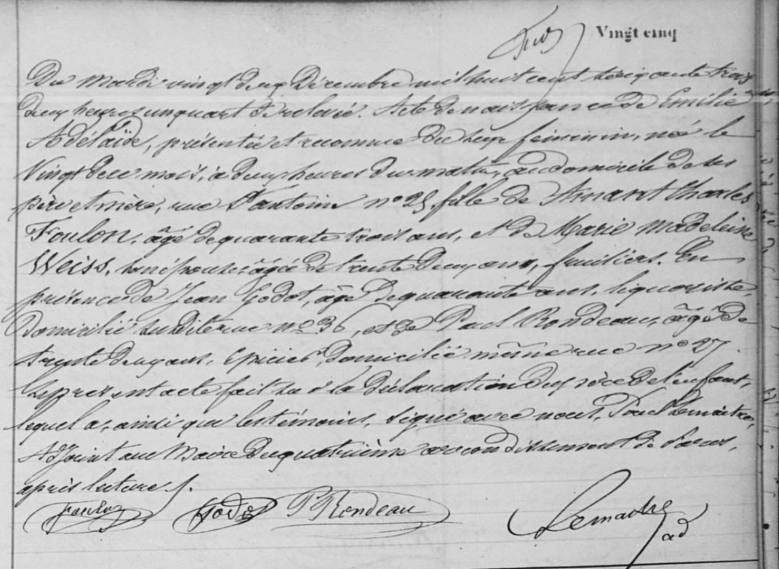 Vingt cinq
Du Mardi vingt deux Décembre mil huit cent soixante trois
deux heures un quart de relevé. Acte de naissance de Emilie
Adélaïde, présentée et reconnue du sexe féminin, née le
Vingt de ce mois, à deux heures du matin, au domicile de ses
père et mère, rue St Antoine no 25, fille de Amant Charles
Foulon, âgé de quarante trois ans, et de Marie Madeleine
Weiss, son épouse, âgée de trente deux ans, fruitiers. En
présence de Jean Godot, âgé de quarante ans, liquoriste,
domicilié susdite rue no 36, et de Paul Rondeau, âgé de
trente deux ans, Epicier, domicilié même rue no 27.
Le présent acte fait sur la déclaration du père de l'enfant,
lequel a, ainsi que les témoins, signé avec nous, Lemaitre,
Adjoint au Maire du quatrième arrondissement de Paris,
après lecture.
P Rondeau Lemaitre
ad